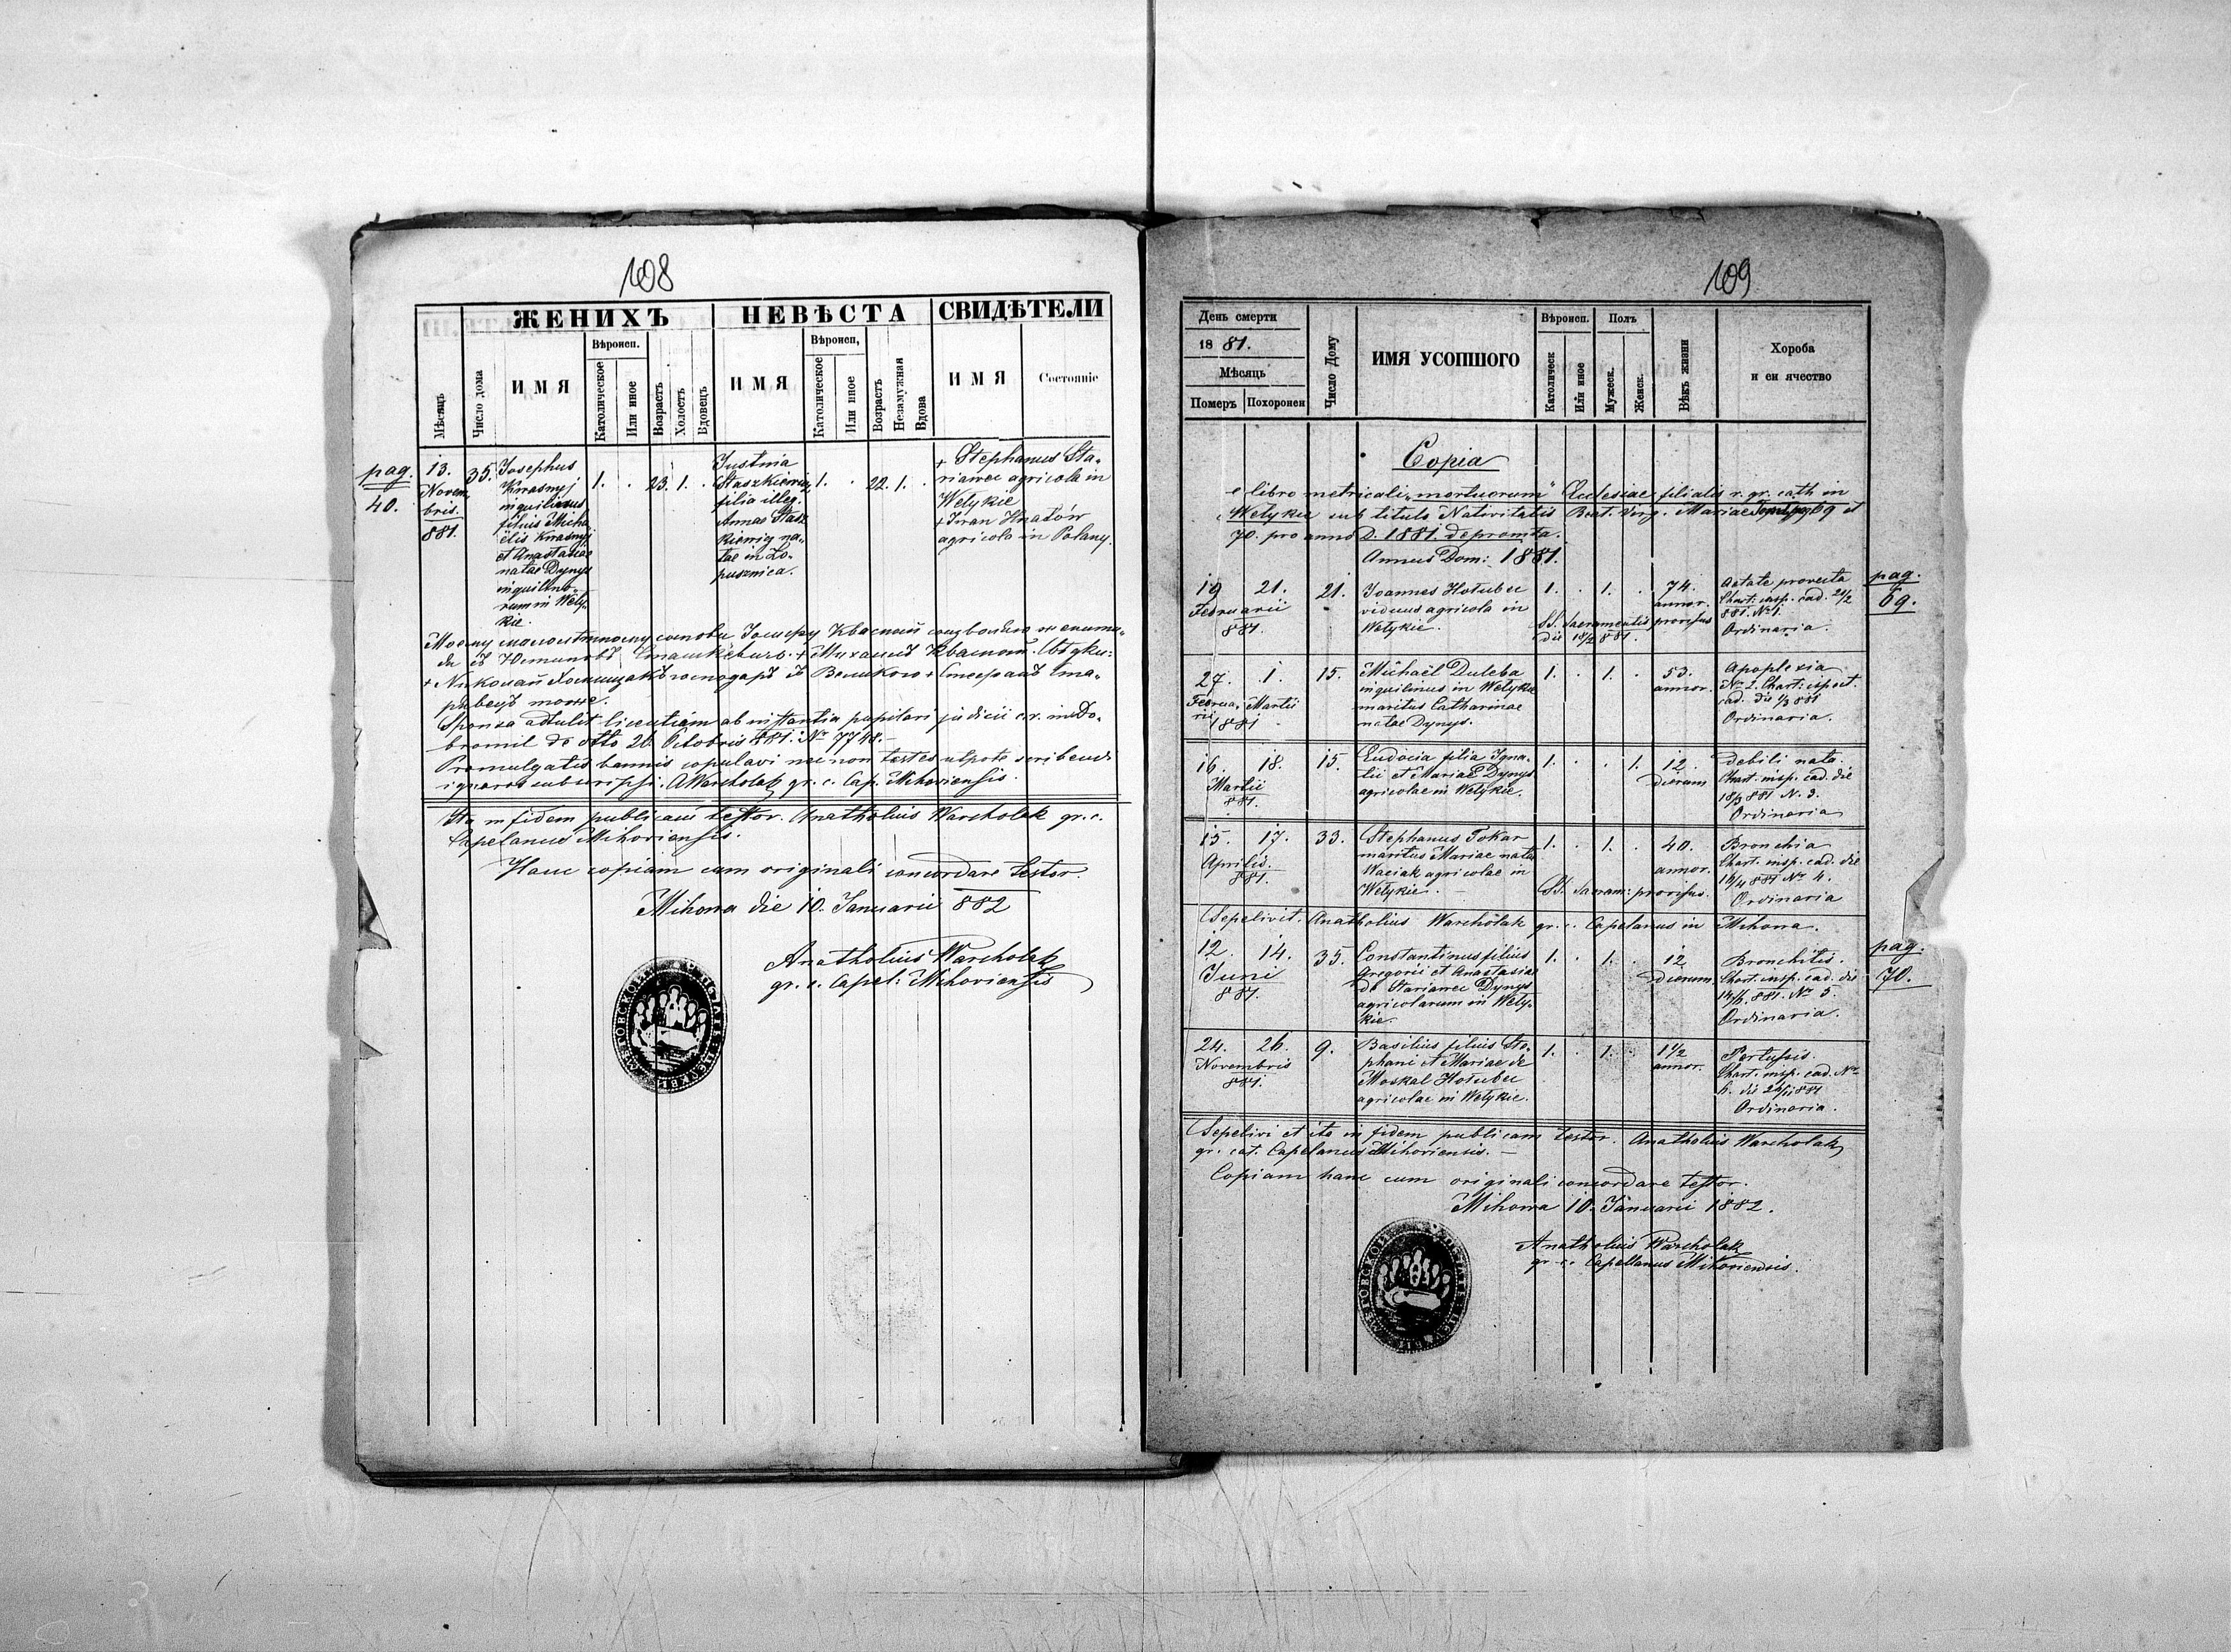 108
ЖЕНИХЪ
НЕВѢСТА
СВИДѢТЕЛИ
Мѣсяць
Число дома
ИМЯ
Вѣроисп.
Католическое
Или иное
Возрастъ
Холостъ
Вдовець
ИМЯ
Вѣроисп,
Католическое
Или иное
Возрастъ
Незамужная
Вдова
ИМЯ
Состояніе
pag.
40.
13.
Novem
bris.
881.
35.
Josephus
Kwasnyj
inquilinus
filius Micha
ëlis Kwasnyj
et Anastasiae
natae Dynys
inquilino-
rum in Wely-
kie.
1. . 23. 1. .
Justina
Staszkiewicz
filia illeg.
Annae Stasz
kiewicz na-
tae in Lo-
pusznica.
1. . 22. 1. .
+ Stephanus Sta-
riawec agricola in
Welykie
+ Iwan Hnatów
agricola in Polany.
Моему малолѣтному сынови Іосифу Квасный соизволяю женити-
ся съ Юстиновъ Сташкѣвичъ. + Михаилъ Квасный. Свѣдки:
+ Николай господарь зъ Великого + Стефанъ Ста-
рявецъ тоже.
Sponsa adtulit licentiam ab instantia pupilari judicii c.r. in Do-
bromil de dtto 26. Octobris 881. No 7748.-
Promulgatis bannis copulavi nec non testes utpote scribendi
ignaros subscripsi. AWarcholak gr. c. Cap. Mihoviensis.
Ita in fidem publicam testor. Anatholius Warcholak gr. c.
Capelanus Mihoviensis.
Hanc copiam cum originali concordare testor.
Mihowa die 10. Januarii 882
Anatholius Warcholak
gr. c. Capel: Mihoviensis
109
День смерти
18 81.
Мѣсяць
Померъ
Похоронен
Число Дому
ИМЯ УСОПШОГО
Вѣроисп.
Католическ
Или иное
Полъ
Мужеск.
Женск.
Вѣкъ жизни
Хороба
и еи ячество
Copia
e libro metricali „mortuorum" Ecclesiae filialis r. gr. cath in
Welykie sub titulo Nativitatis Beat. Virg. Mariae 69 et
70. pro anno D. 1881. depromta.
Annus Dom: 1881.
19 21.
Februarii
881.
21.
Joannes Hołubec
viduus agricola in
Wełykie.
1. . 1. .
SS. Sacramentis provisus
die 18/2 881.
74.
annor.
Aetate provecta
Chart. insp. cad. 21/2
881. No 1.
Ordinaria.
pag.
69.
27. 1.
Februa- Martii
rii 1881
15.
Michaël Duleba
inquilinus in Wełykie
maritus Catharinae
natae Dynys.
1. . 1. .
53.
annor.
Apoplexia
No 2. Chart: inspect.
cad. die 1/3 881
Ordinaria.
16. 18.
Martii
881.
15.
Eudocia filia Igna-
tii et Mariae Dynys
agricolae in Wełykie.
1. . . 1.
12
dierum
debili nata.
Chart. insp. cad. die
18/3 881 N. 3.
Ordinaria
15. 17.
Aprilis.
881.
33.
Stephanus Tokar
maritus Mariae nata
Waciak agricolae in
Wełykie.
1. . 1. .
SS. Sacram: provisus.
40.
annor.
Bronchia
Chart. insp. cad. die
16/4 881 No 4.
Ordinaria
Sepelivit. Anatholius Warcholak gr. c. Capelanus in Mihowa.
12. 14.
Juni
881.
35.
Constantinus filius
Gregorii et Anastasiae
de Stariawec Dynys
agricolarum in Wely-
kie.
1. . 1. .
12
dierum
Bronchitis.
Chart. insp. cad. die
14/6. 881. No 5.
Ordinaria.
pag.
70.
24. 26.
Novembris
881.
9.
Basilius filius Ste-
phani et Mariae de
Moskal Hołubec
agricolae in Wełykie.
1. . 1. .
1 1/2
annor.
Pertussis.
Chart. insp. cad. No
6. die 26/11 881
Ordinaria.
Sepelivi et ita in fidem publicam testor. Anatholius Warcholak
gr. cat. Capelanus Mihoviensis.-
Copiam hanc cum originali concordare testor.
Mihowa 10. Januarii 1882.
Anatholius Warcholak
gr. c. Capellanus Mihoviensis.